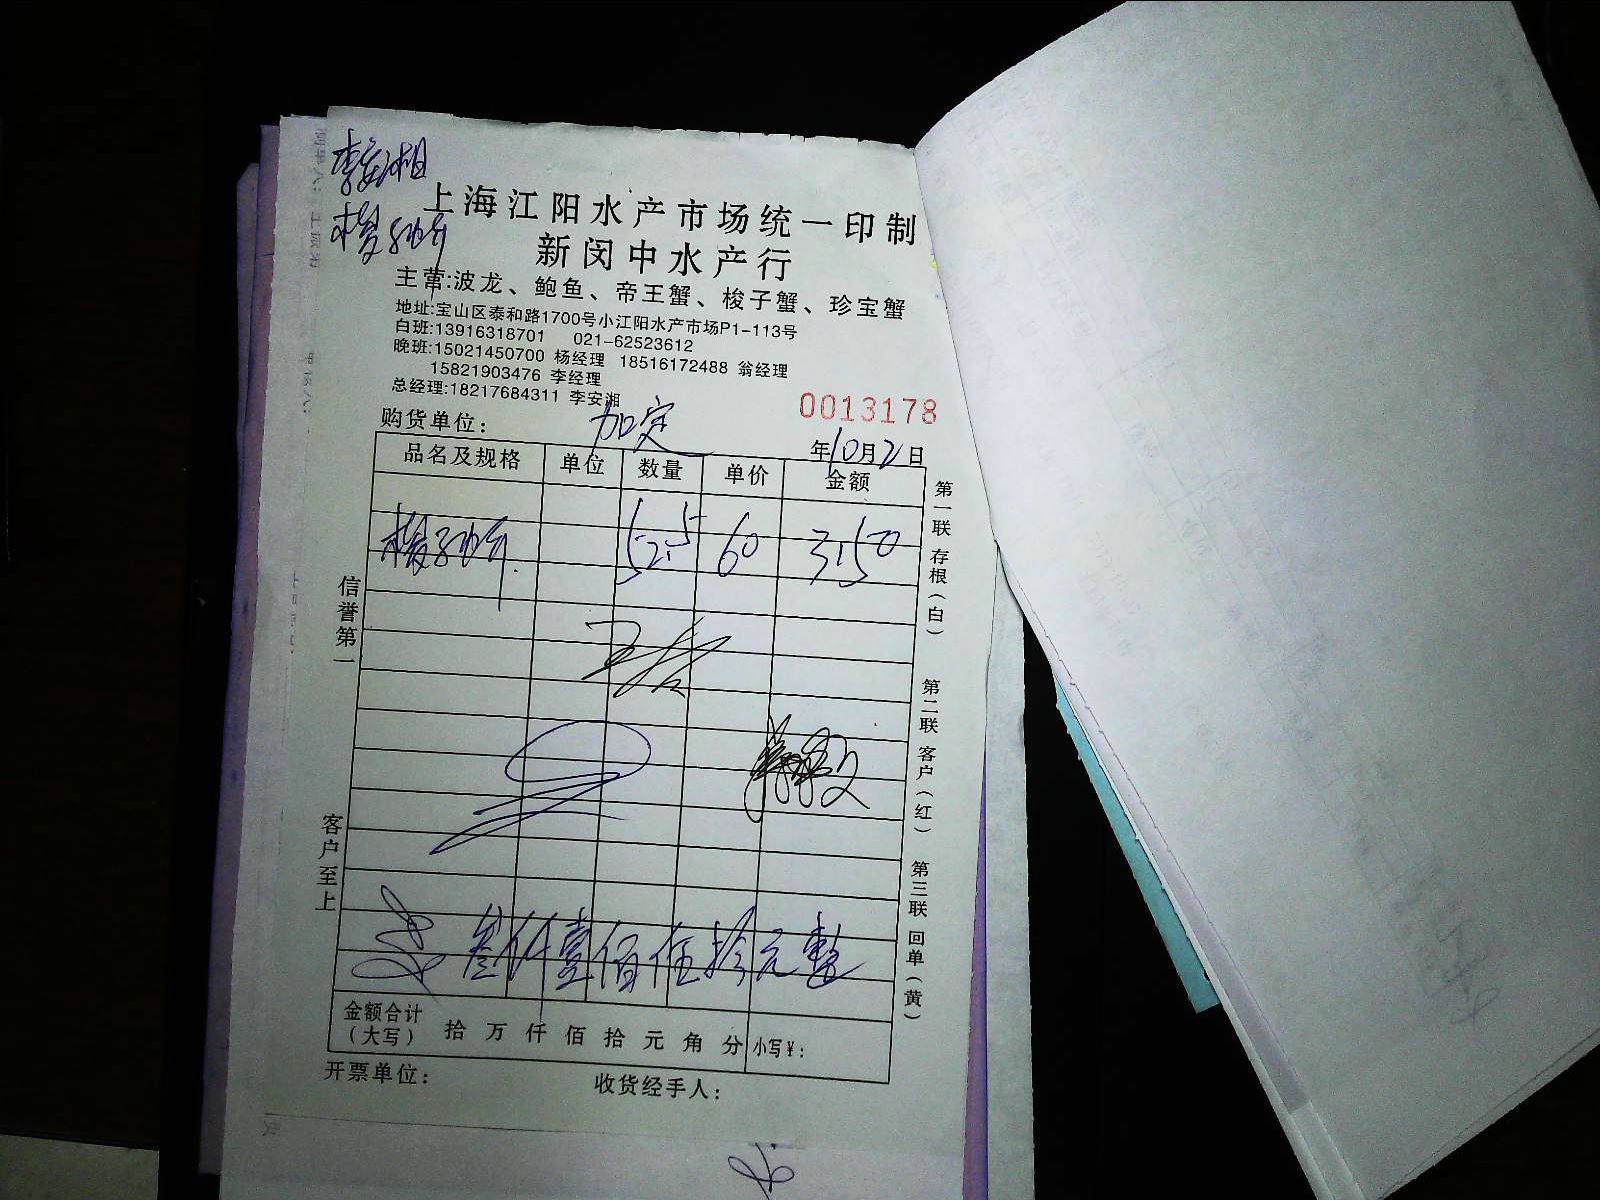 李安湘
梭子蟹
上海江阳水产市场统一印制
新闵中水产行
主营:波龙、鲍鱼、帝王蟹、梭子蟹、珍宝蟹
地址:宝山区泰和路1700号小江阳水产市场P1-113号
白班:13916318701 021-62523612
晚班:15021450700 杨经理 18516172488 翁经理
15821903476 李经理
总经理:18217684311 李安湘
0013178
购货单位: 加定
年10月2日
品名及规格 单位 数量 单价 金额
梭子蟹 52.5 60 3150
叁仟壹佰伍拾元整
金额合计
(大写) 拾 万 仟 佰 拾 元 角 分 小写¥:
开票单位: 收货经手人:
信誉第一
客户至上
第一联 存根(白)
第二联 客户(红)
第三联 回单(黄)